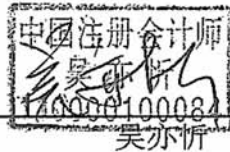 中国注册会计师
吴亦忻
110000100084
吴亦忻